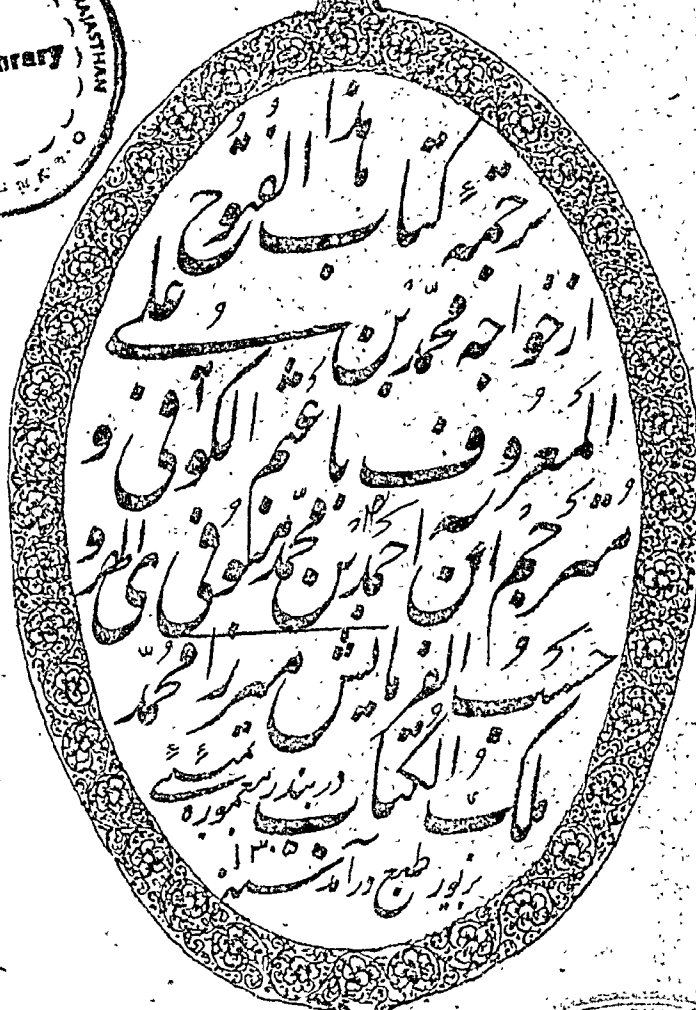 RAJASTHAN
rary
هذا
ترجمهٔ کتاب الفتوح
از خواجه محمّد بن علی
المعروف باعثم الکوفی و
مترجم این احمد بن محمّد منوفی الهروی
حسب الفرمایش میرزا محمّد
ملک الکتاب در بندر معموره بمبئی
بزیور طبع درآمد سنه ۱۳۰۵